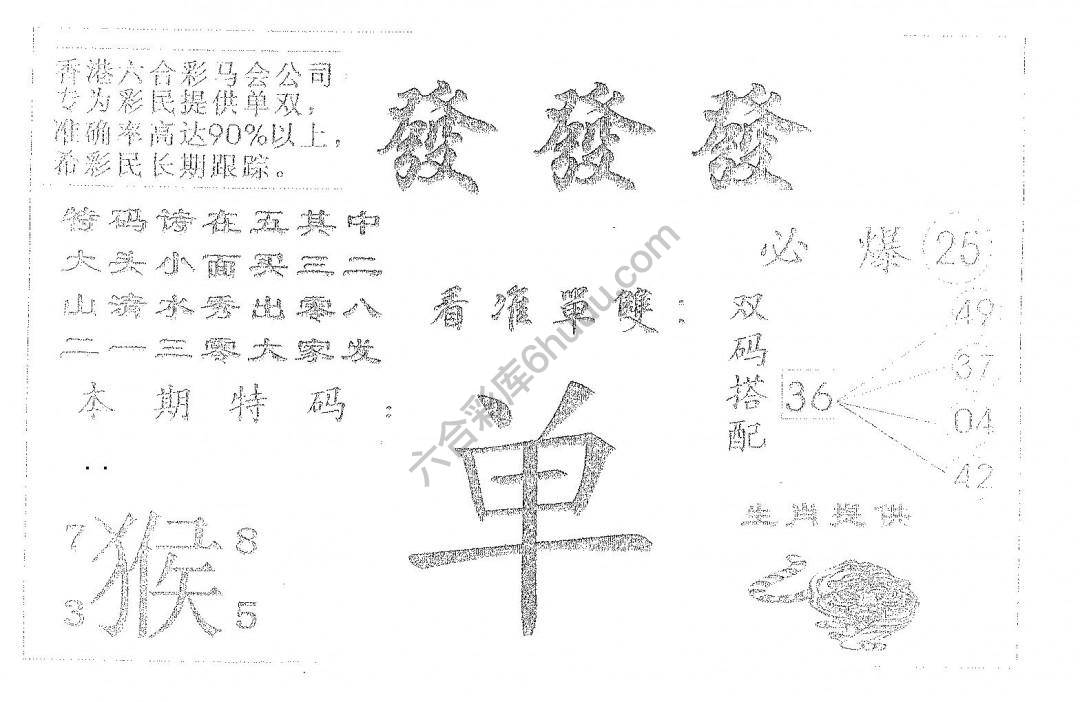 香港六合彩马会公司
专为彩民提供单双,
准确率高达90%以上,
希彩民长期跟踪。
發 發 發
特码请在五其中
大头小面买三二
山清水秀出零八
二一三零大家发
本期特码:
..
7 8
猴
3 5
看准單雙:
单
必爆25
双码搭配
36
49
37
04
42
生肖提供
六合彩库6hudu.com